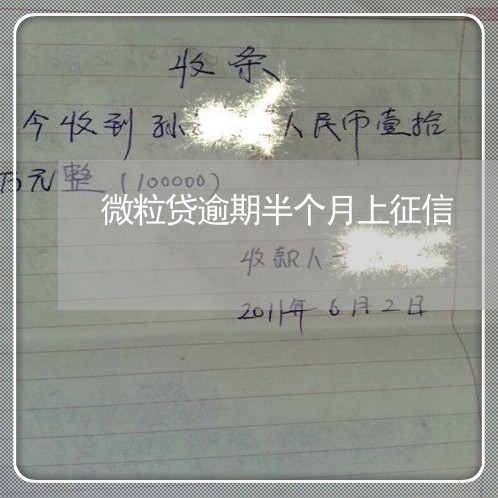 收条
今收到孙 人民币壹拾
万元整（100000）
微粒贷逾期半个月上征信
收款人
2011年6月2日